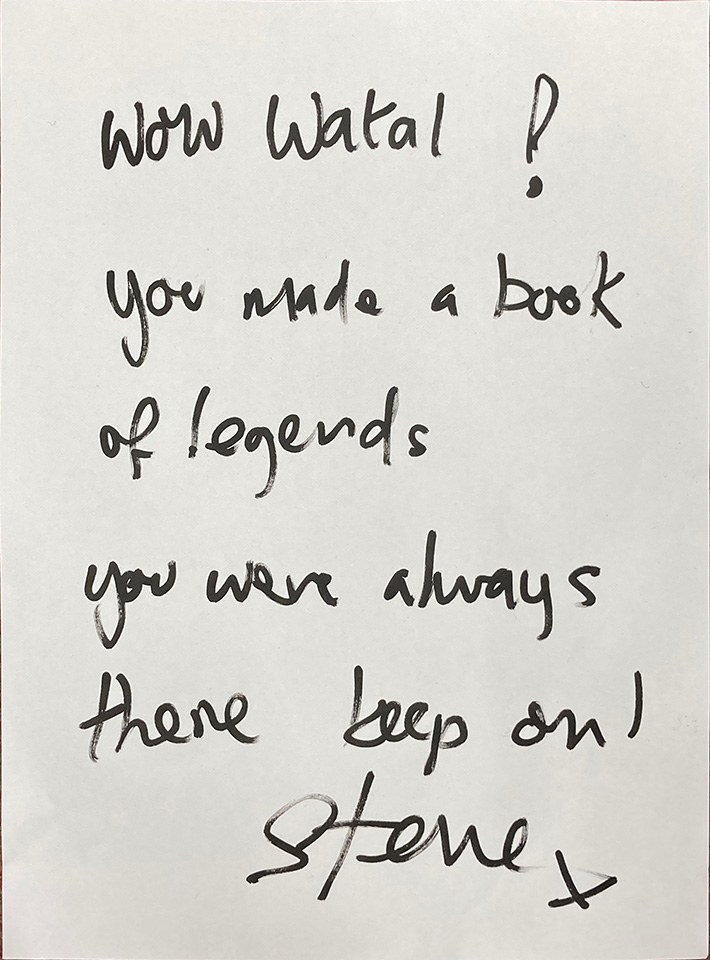 Wow Watal !
you made a book
of legends
you were always
there keep on!
Steve x